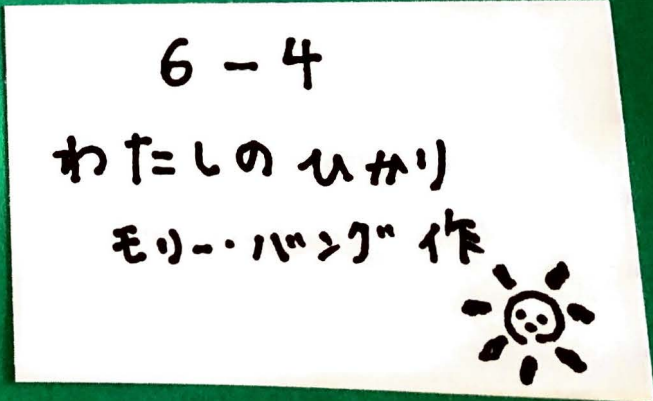 6-4
わたしのひかり
モリー・バング 作